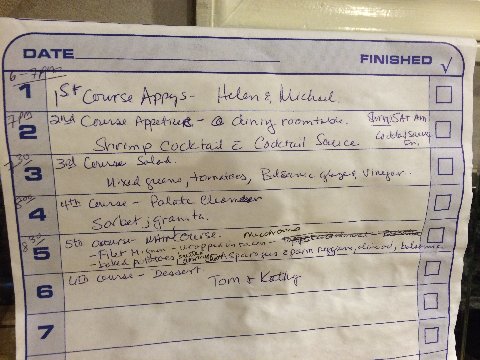 DATE FINISHED √
6-7PM
1 1st Course Appys- Helen & Michael.
7PM 2nd Course Appetizers- @ dining room table. Shrimp SAT Am
2 Shrimp Cocktail c Cocktail Sauce Cocktail Sauce
7:30 3rd Course Salad.
3 Mixed greens, tomatoes, Balsamic glaze, Vinegar.
8:00 4th Course - Palate Cleanser
4 Sorbet; granita.
8:30 5th course Main Course. mushrooms
5 - Filet Mignon - wrapped in bacon -
- baked potatoes asparagus c parm reggiano, almond, balsamic
6 6th Course - Dessert Tom & Kathy
7